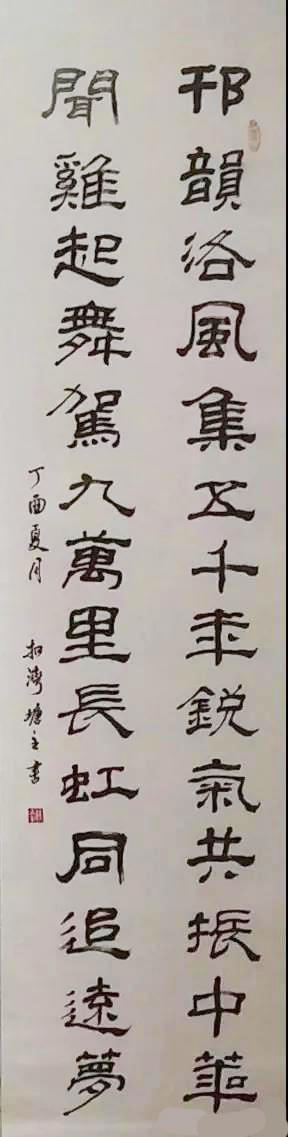 邗韻洛風集五千年鋭氣共振中華
聞雞起舞駕九萬里長虹同追遠夢
丁酉夏月 灣塘主書